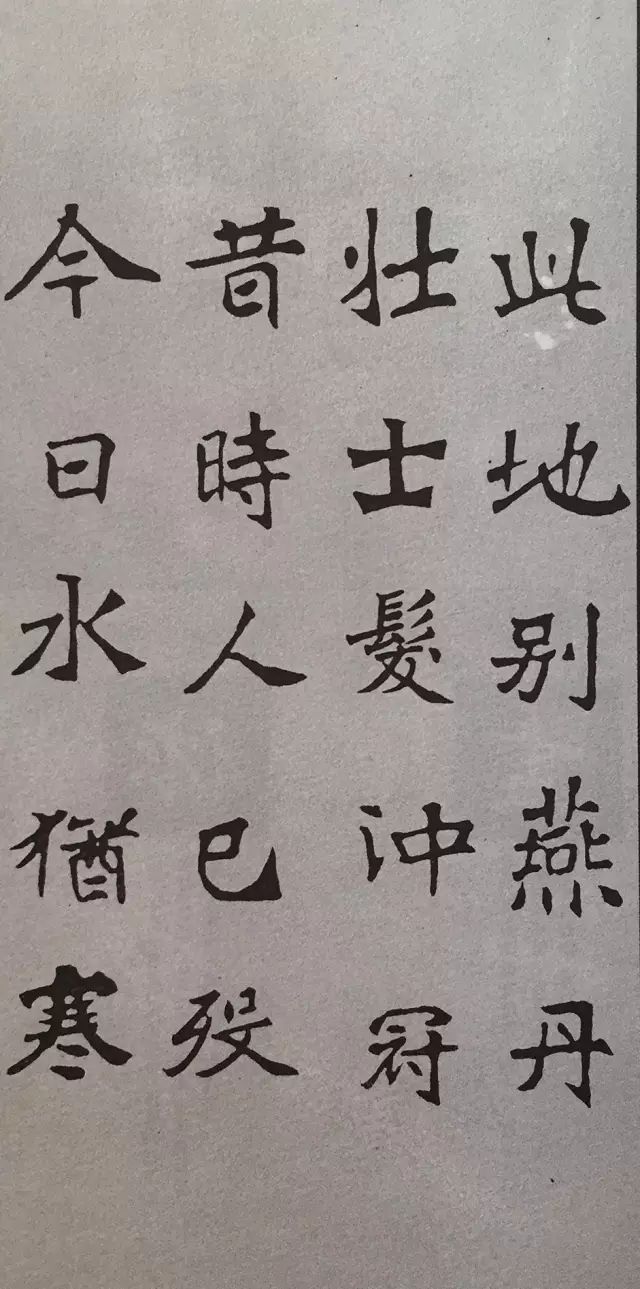 此地别燕丹
壮士髮冲冠
昔時人已殁
今日水猶寒